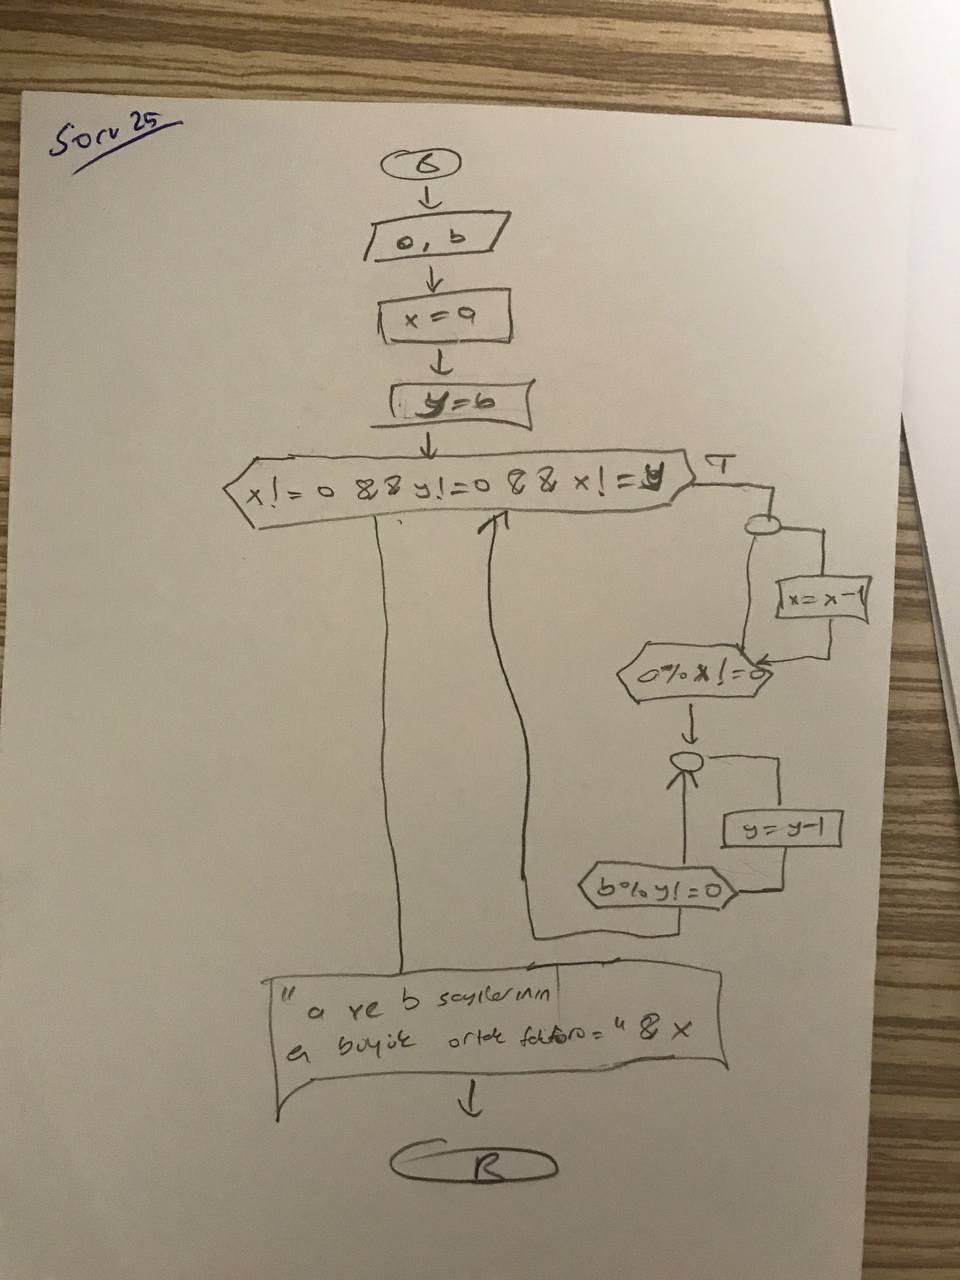 Soru 25
B
a, b
x = a
y = b
x! = 0 && y! = 0 && x! = y
T
x = x-1
a % x! = 0
y = y-1
b % y! = 0
" a ve b sayılarının
en büyük ortak faktörü = " & x
B